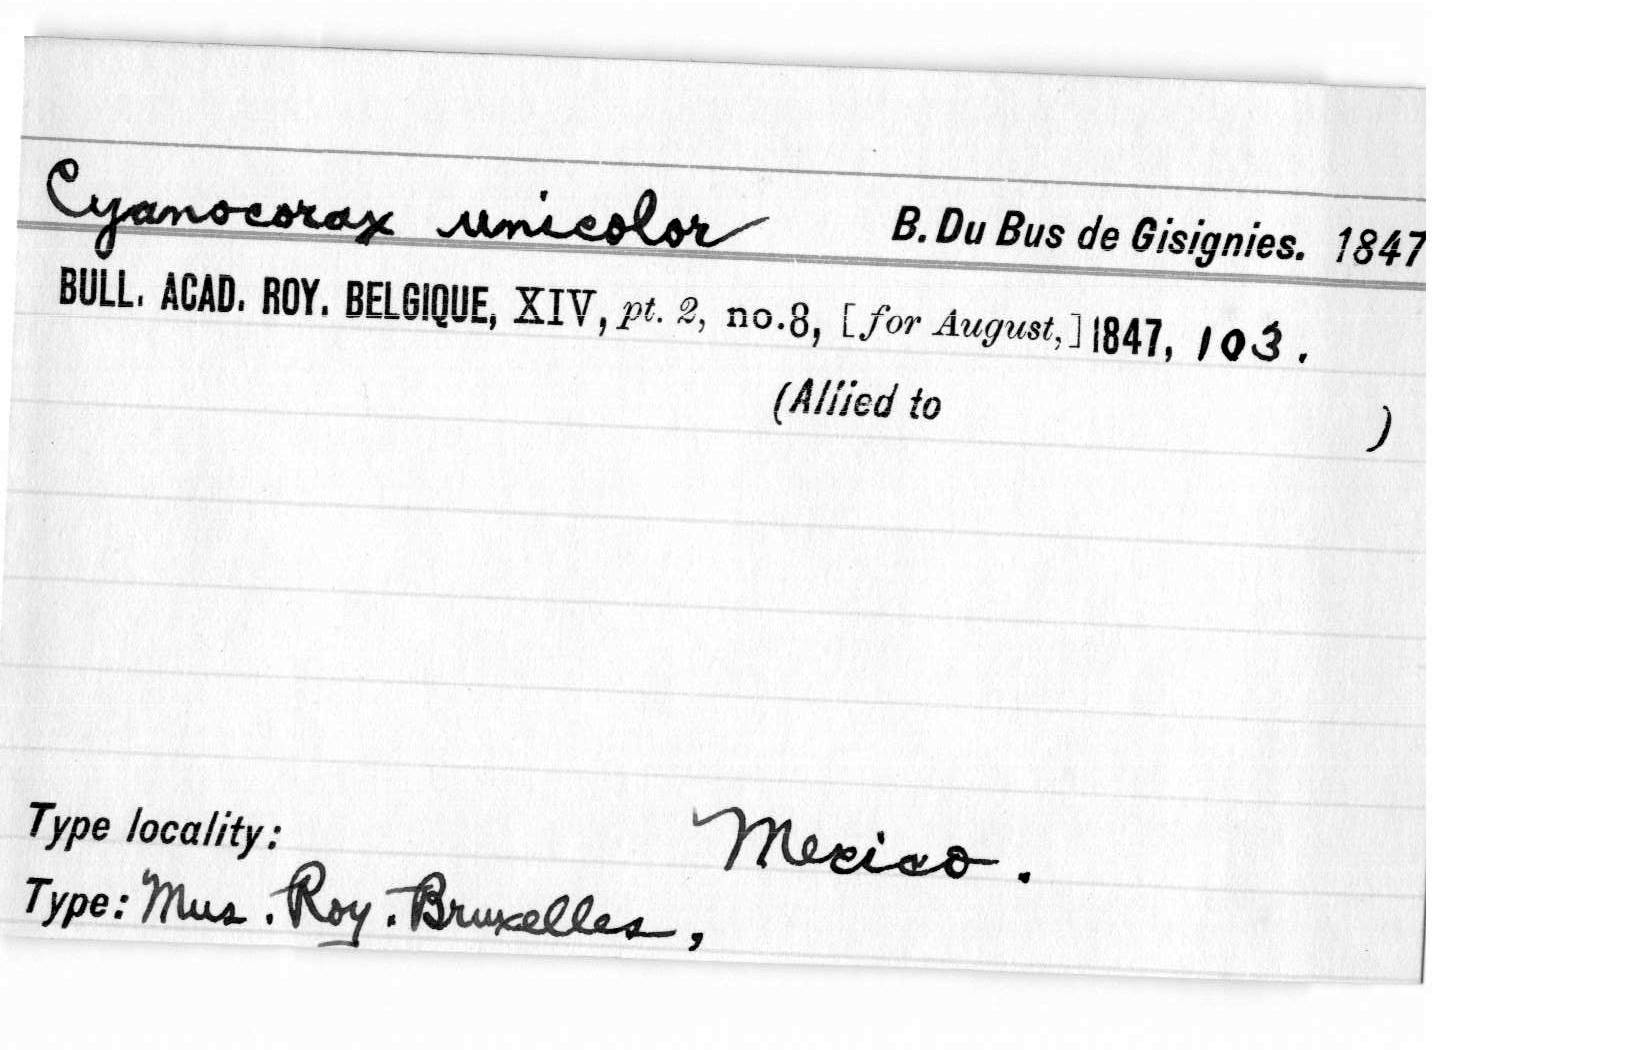 Cyanocorax unicolor B. Du Bus de Gisignies. 1847
BULL. ACAD. ROY. BELGIQUE, XIV, pt. 2, no. 8, [for August,] 1847, 103.
(Allied to )
Type locality: Mexico.
Type: Mus. Roy. Bruxelles,